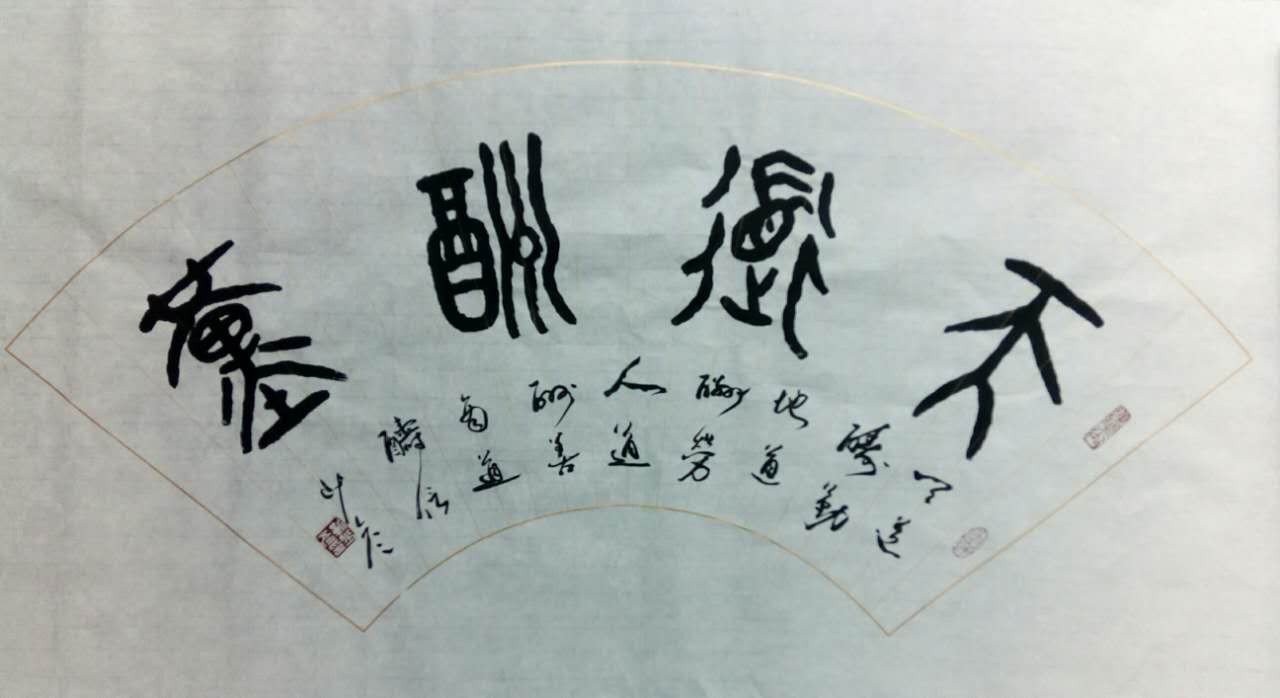 天道酬勤
天道
酬勤
地道
酬劳
人道
酬善
商道
酬信